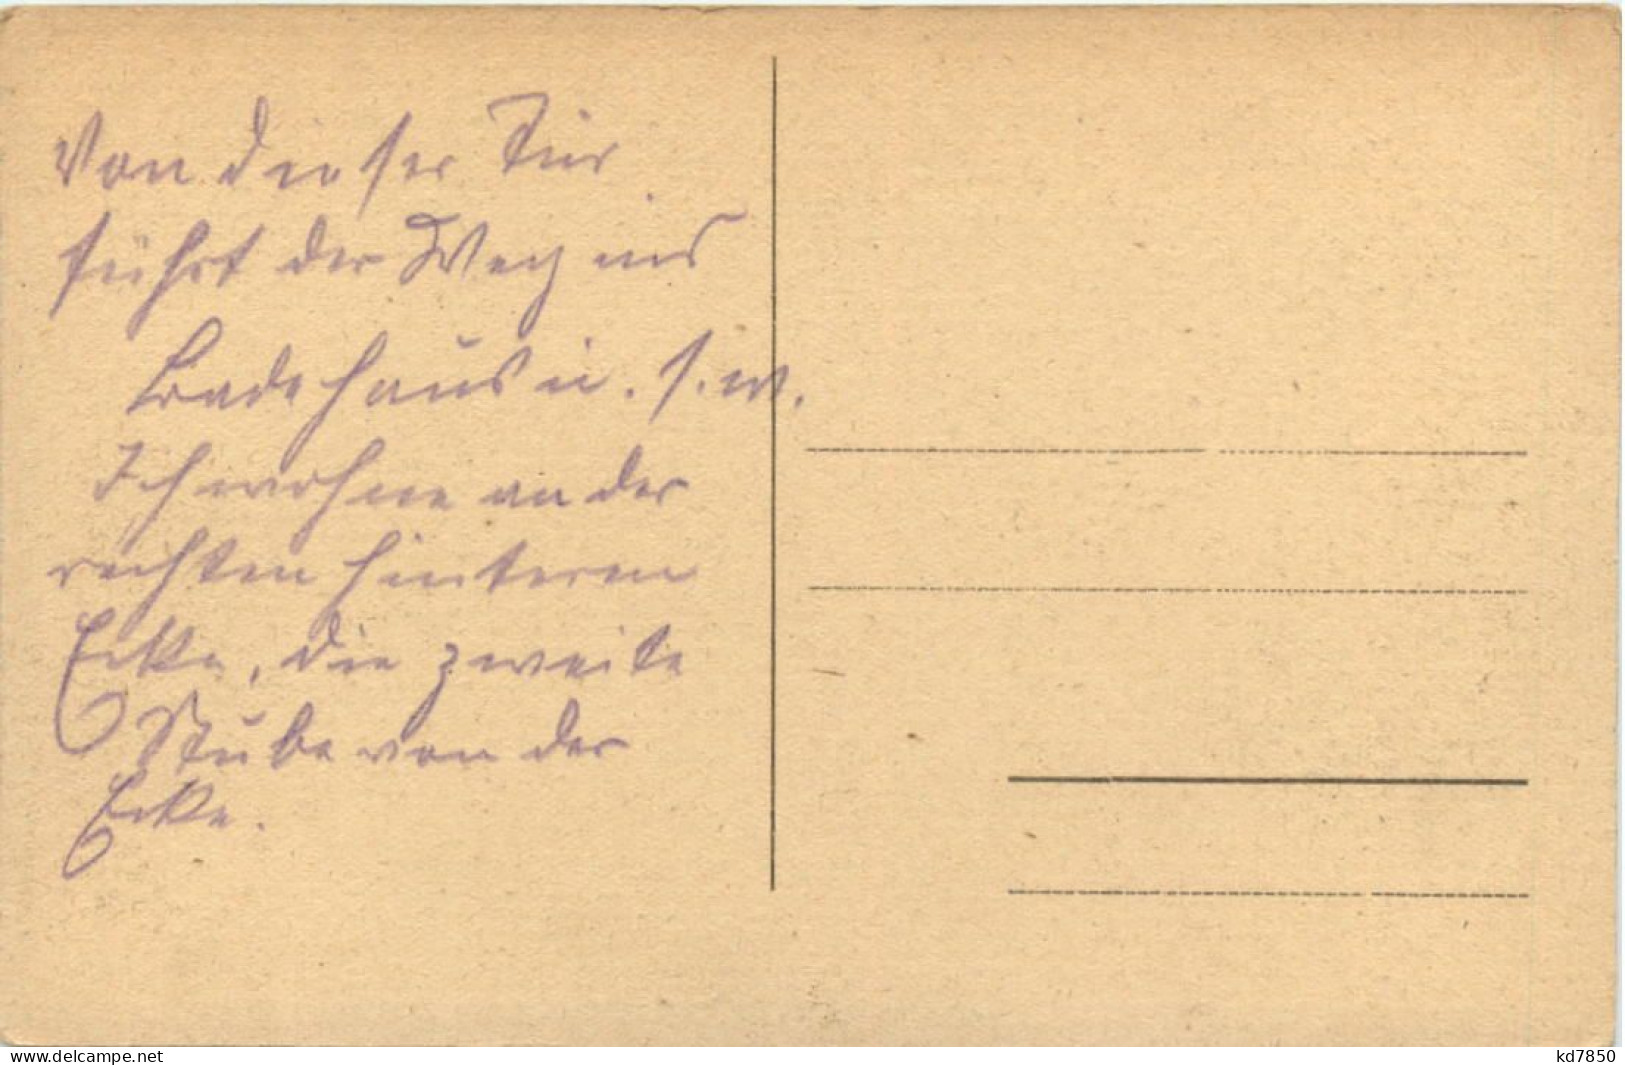 Von dieser Tür
führt der Weg ins
Badehaus u. s. w.
Ich wohne an der
rechten hinteren
Ecke, die zweite
Stube von der
Ecke.
www.delcampe.net
kd7850